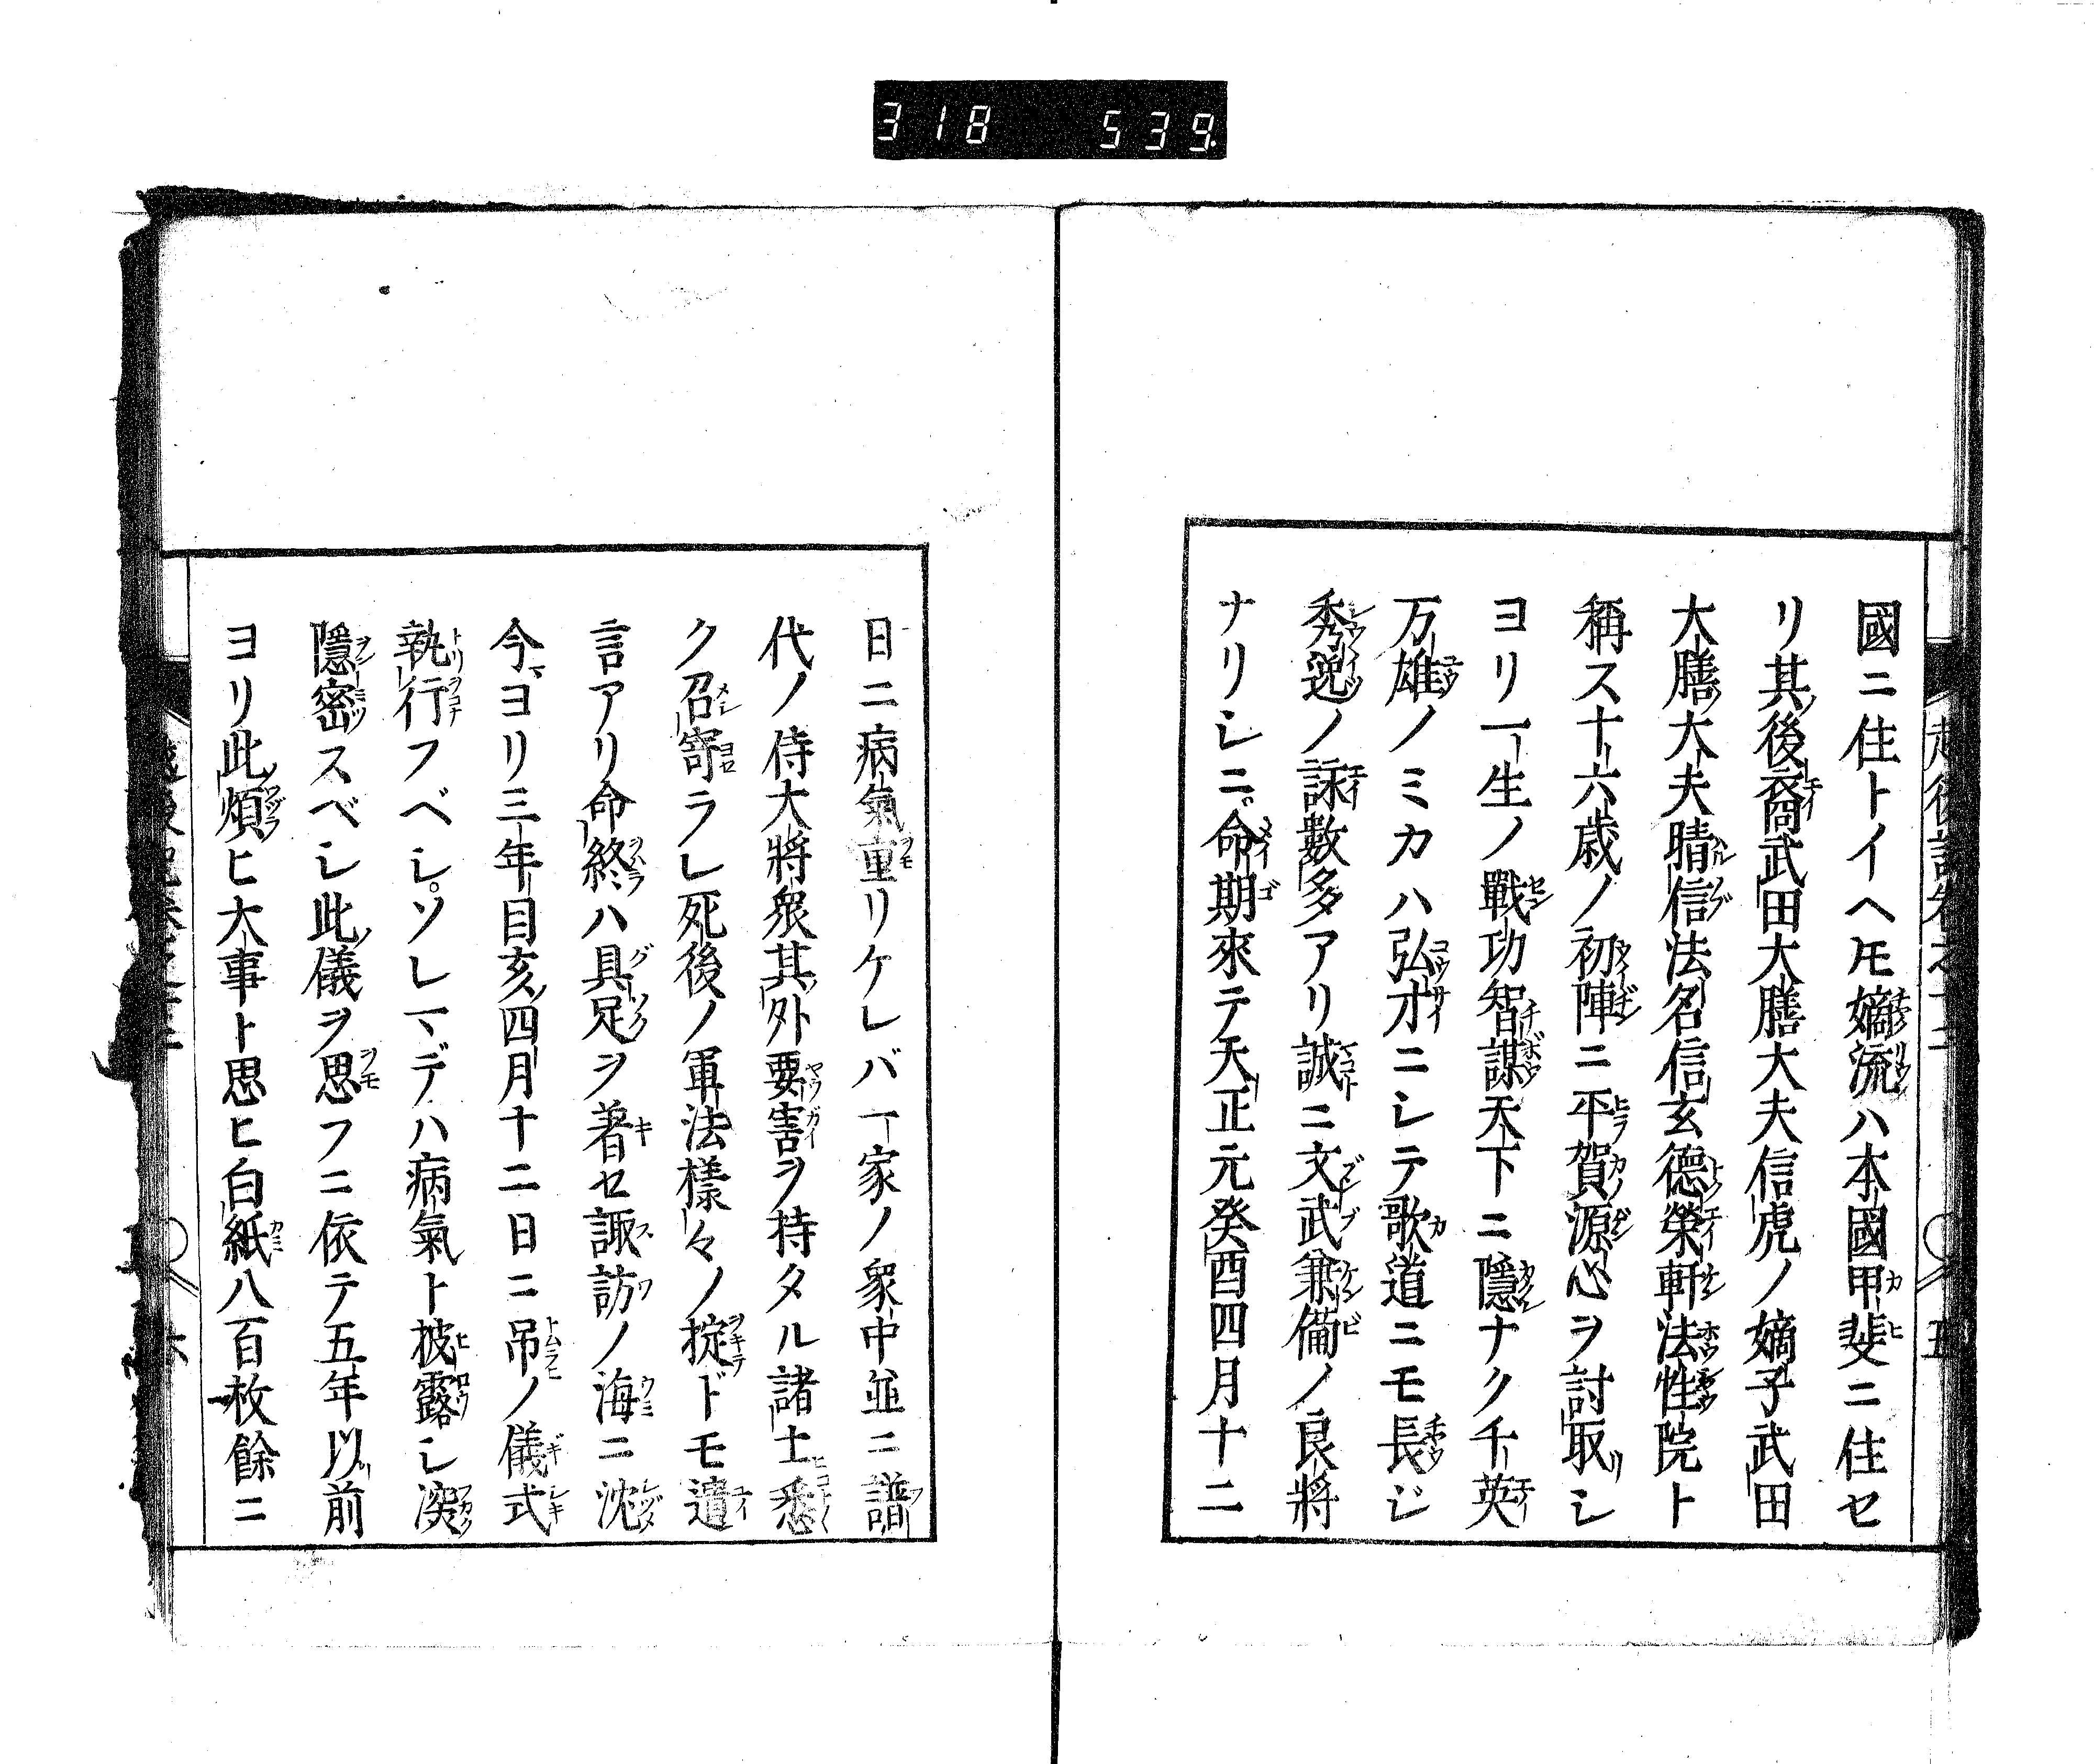 318 539
國ニ住トイヘ𪜈嫡流ハ本國甲斐ニ住セ
リ其後裔武田大膳大夫信虎ノ嫡子武田
大膳大夫晴信法名信玄德榮軒法性院ト
稱ス十六歳ノ初陣ニ平賀源心ヲ討取シ
ヨリ一生ノ戰功智謀天下ニ隱ナク千英
万雄ノミカハ弘才ニシテ歌道ニモ長ジ
秀逸ノ詠數多アリ誠ニ文武兼備ノ良將
ナリシニ命期來テ天正元癸酉四月十二
日ニ病氣重リケレバ一家ノ衆中並ニ譜
代ノ侍大將衆其外要害ヲ持タル諸士悉
ク召寄ラレ死後ノ軍法樣々ノ掟ドモ遺
言アリ命終ハ具足ヲ著セ諏訪ノ海ニ沈
今ヨリ三年目亥四月十二日ニ吊ノ儀式
執行フベシソレマデハ病氣ト披露シ深
隱密スベシ此儀ヲ思フニ依テ五年以前
ヨリ此煩ヒ大事ト思ヒ白紙八百枚餘ニ